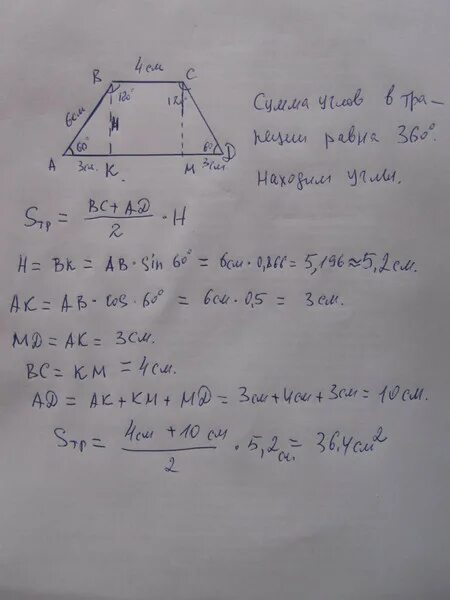 4 см
B
C
6см
120°
120°
H
Сумма углов в тра-
пеции равна 360°.
Находим углы.
60°
60°
A
3см.
K.
M
3см.
D
Sтр = BC + AD / 2 · H
H = BK = AB · sin 60° = 6см · 0,866 = 5,196 ≈ 5,2 см.
AK = AB · cos · 60° = 6см · 0,5 = 3 см.
MD = AK = 3 см.
BC = KM = 4 см.
AD = AK + KM + MD = 3см + 4см + 3см = 10 см.
Sтр = 4см + 10 см / 2 · 5,2 см = 36,4 см²